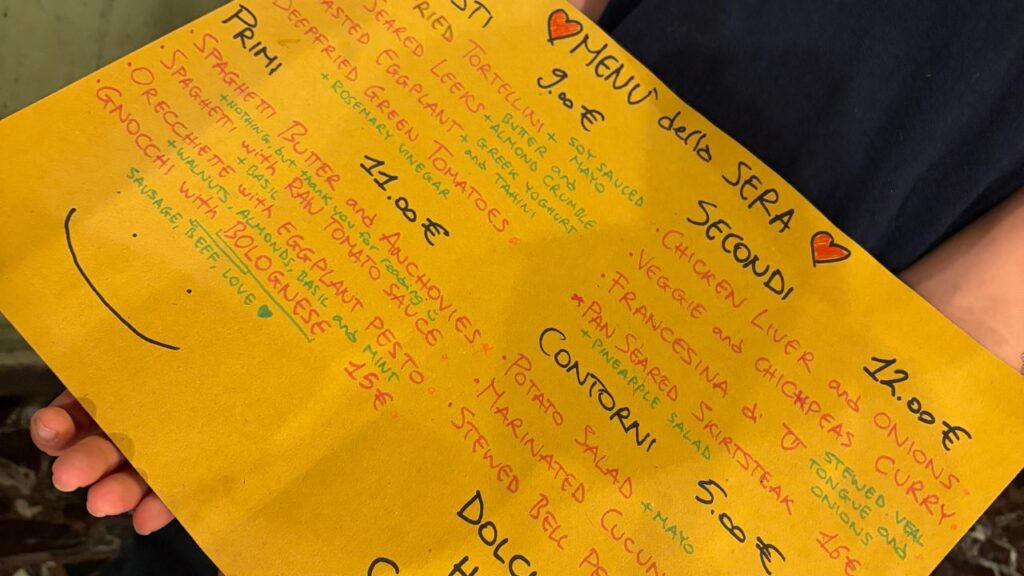 MENÙ della SERA
STI
9.00 €
RIED TORTELLINI + SOY SAUCED MAYO
SEARED LEEKS + BUTTER and ALMOND CRUMBLE
ASTED EGGPLANT + GREEK YOGHURT and TAHINI
DEEPFRIED GREEN TOMATOES
+ ROSEMARY VINEGAR
PRIMI 11.00 €
· SPAGHETTI BUTTER and ANCHOVIES
+ NOTHING, but thank you for reading
· SPAGHETTI with RAW TOMATO SAUCE
+ BASIL
· ORECCHIETTE with EGGPLANT PESTO
+ WALNUTS, ALMONDS, BASIL and MINT
· GNOCCHI with BOLOGNESE 15€
SAUSAGE, BEEF, LOVE
SECONDI 12.00 €
· CHICKEN LIVER and ONIONS
· VEGGIE and CHICKPEAS CURRY
· FRANCESINA di STEWED VEAL TONGUE and ONIONS
* PAN SEARED SKIRTSTEAK 16€
+ PINEAPPLE SALAD
CONTORNI 5.00 €
· POTATO SALAD + MAYO
· MARINATED CUCUM
· STEWED BELL PE
DOLC